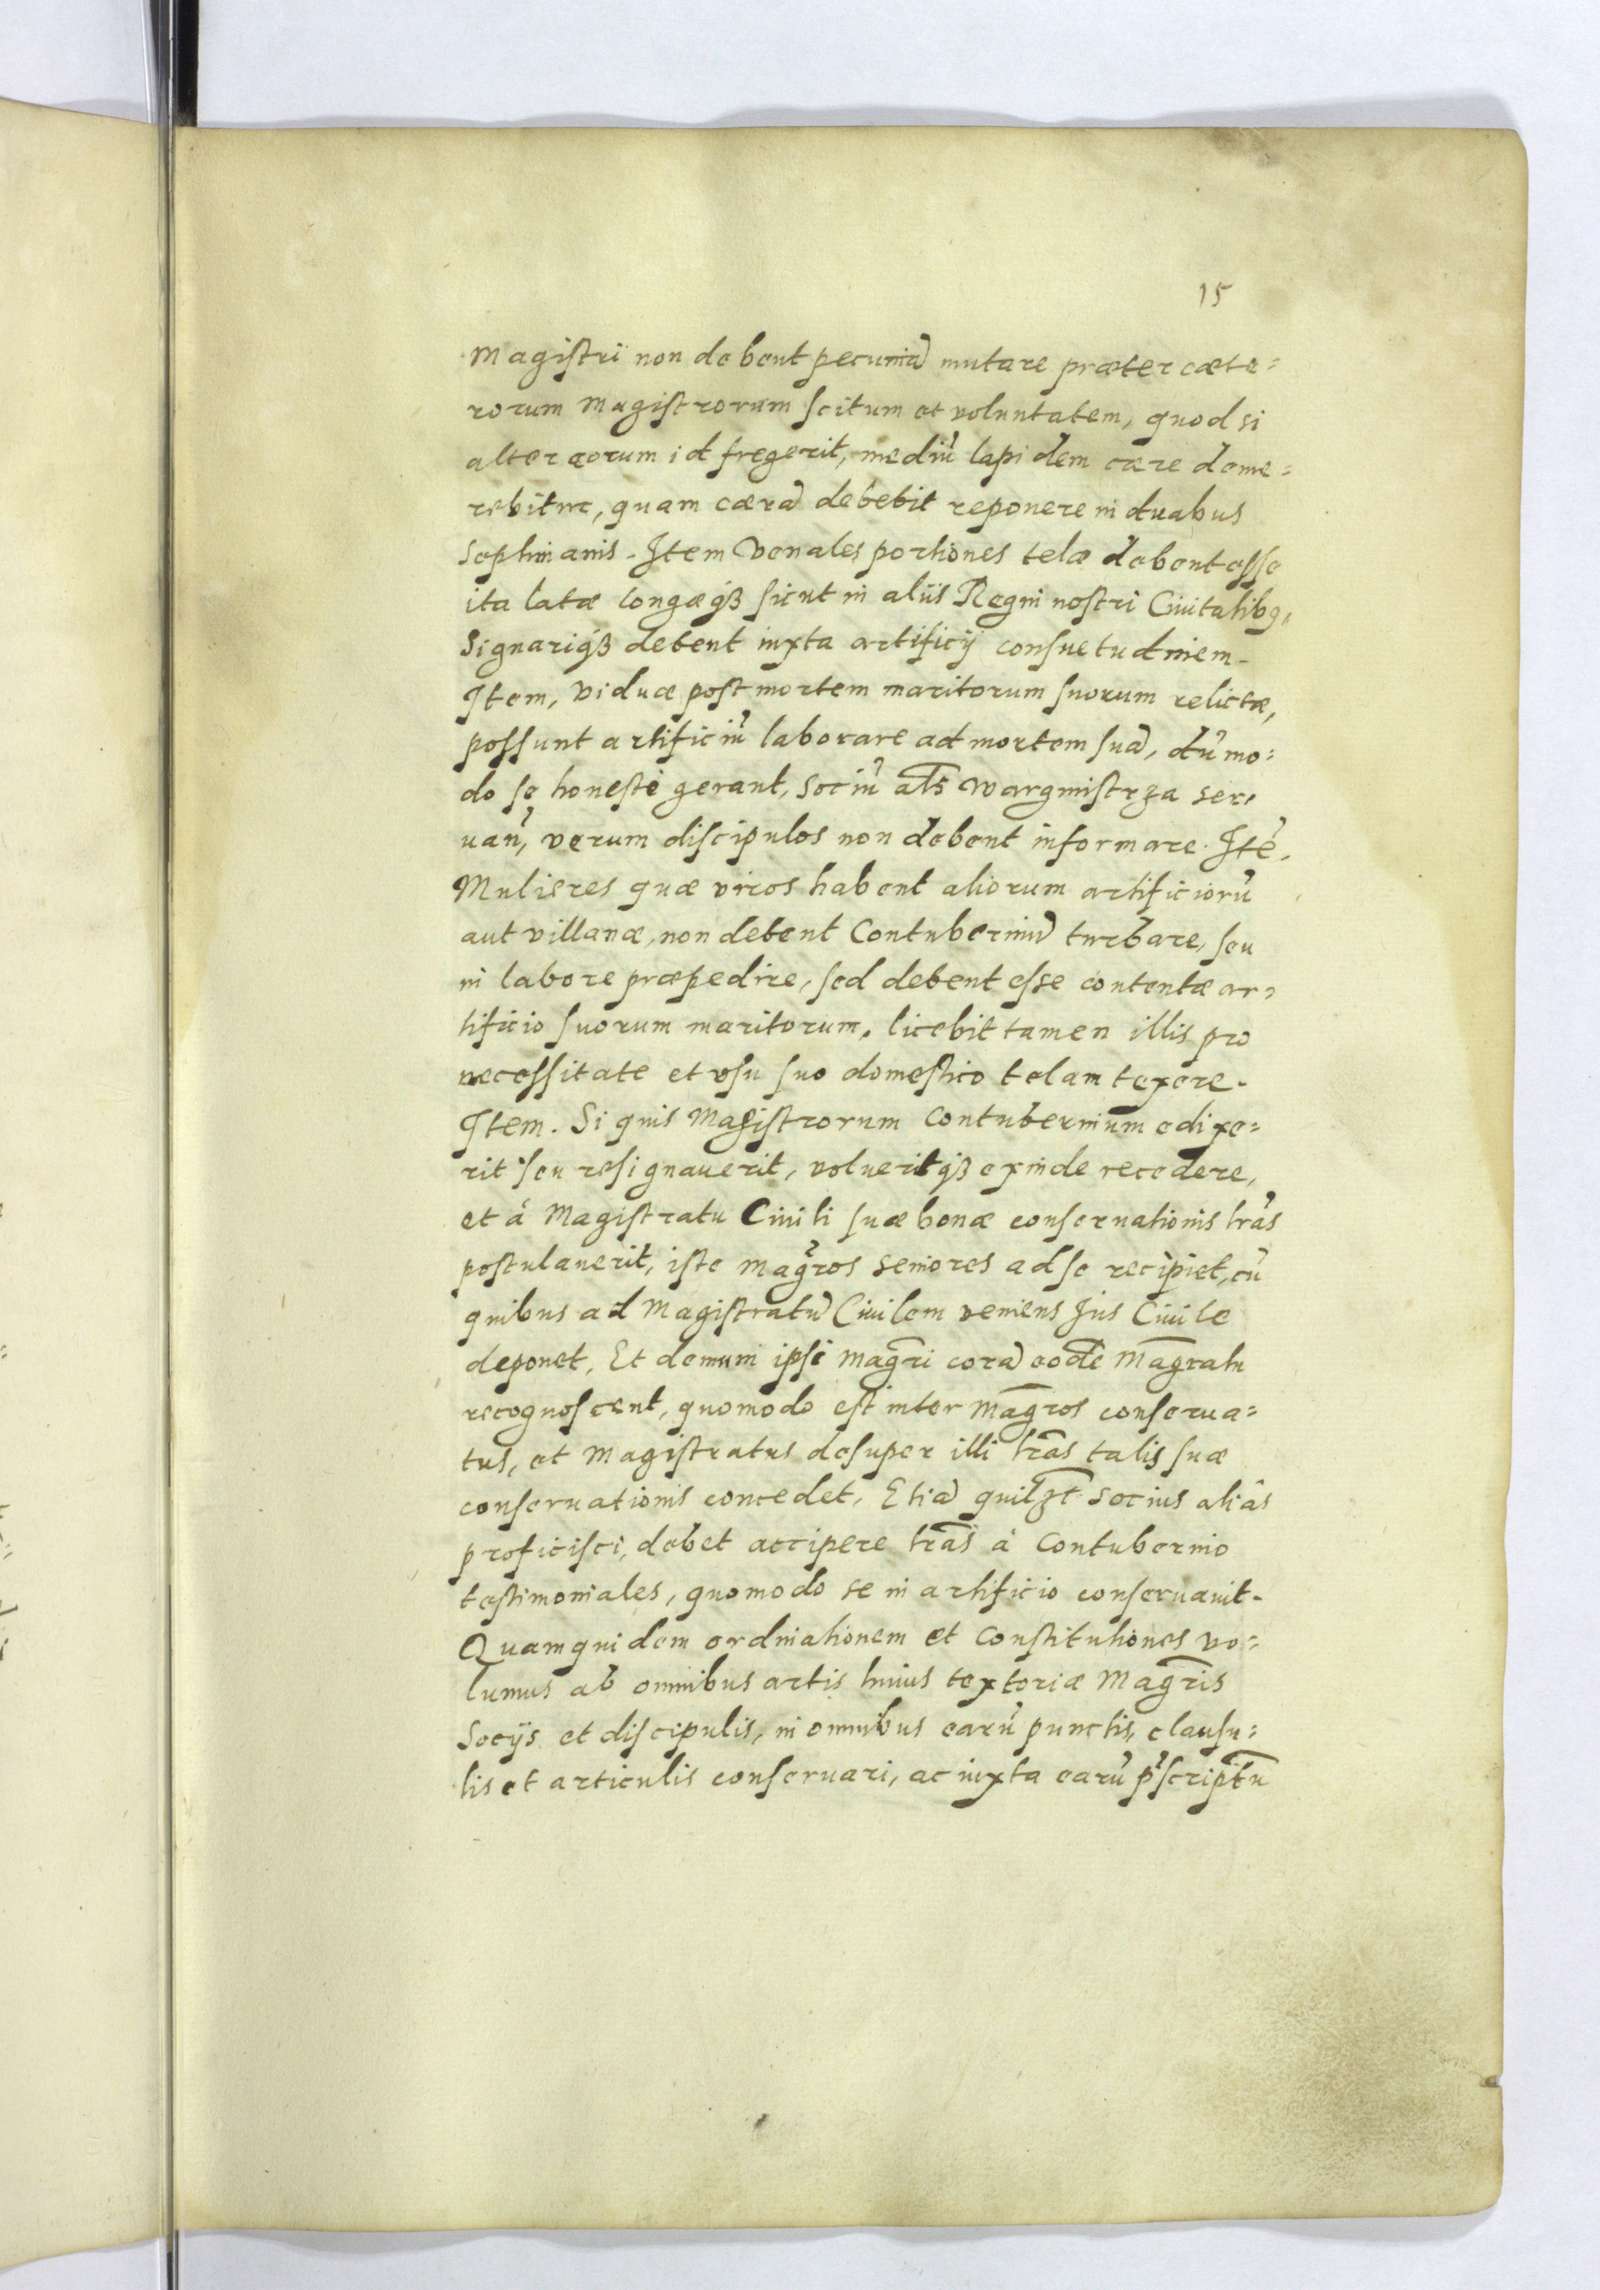 15
Magistri non debent pecuniã mutare præter cæte=
rorum Magistrorum scitum et voluntatem, quod si
alter eorum id fregerit, mediũ lapidem cæræ deme=
rebitur, quam cærã debebit reponere in duabus
septimanis. Item Venales portiones telæ debent esse
ita latæ longæq̃ sicut in aliis Regni nostri Ciuitatibq,
Signariq̃ debent iuxta artificij consuetudinem.
Item, viduæ post mortem maritorum suorum relictæ,
possunt artificiũ laborare ad mortem suã, dũmo=
do se honestè gerant, sociũ als Wargmistrza ser,
uañ, verum discipulos non debent informare. Itẽ.
Mulieres quæ viros habent aliorum artificiorũ
aut villanæ, non debent Contuberniũ turbare, seu
in labore præpedire, sed debent esse contentæ ar,
tificio suorum maritorum, licebit tamen illis pro
necessitate et vsu suo domestico telam texere.
Item. Si quis Magistrorum Contubernium edixe=
rit seu resignauerit, volueritq̃ exinde recedere,
et à Magistratu Ciuili suæ bonæ conseruationis lrãs
postulauerit, iste Magr̃os seniores ad se recipiet, cũ
quibus ad Magistratũ Ciuilem veniens Jus Ciuile
deponet, Et demum ipsi Magr̃i corã eodẽ Magr̃atu
recognoscent, quomodo est inter Magr̃os conserua=
tus, et Magistratus desuper illi lrãs talis suæ
conseruationis concedet, Etiã quilzt Socius aliàs
proficisci, debet accipere lrãs à Contubernio
testimoniales, quomodo se in artificio conseruauit.
Quamquidem ordinationem et Constitutiones vo=
lumus ab omnibus artis huius textoriæ Magr̃is
Socijs et discipulis, in omnibus earũ punctis, clausu=
lis et articulis conseruari, ac iuxta earũ p̃scriptũ